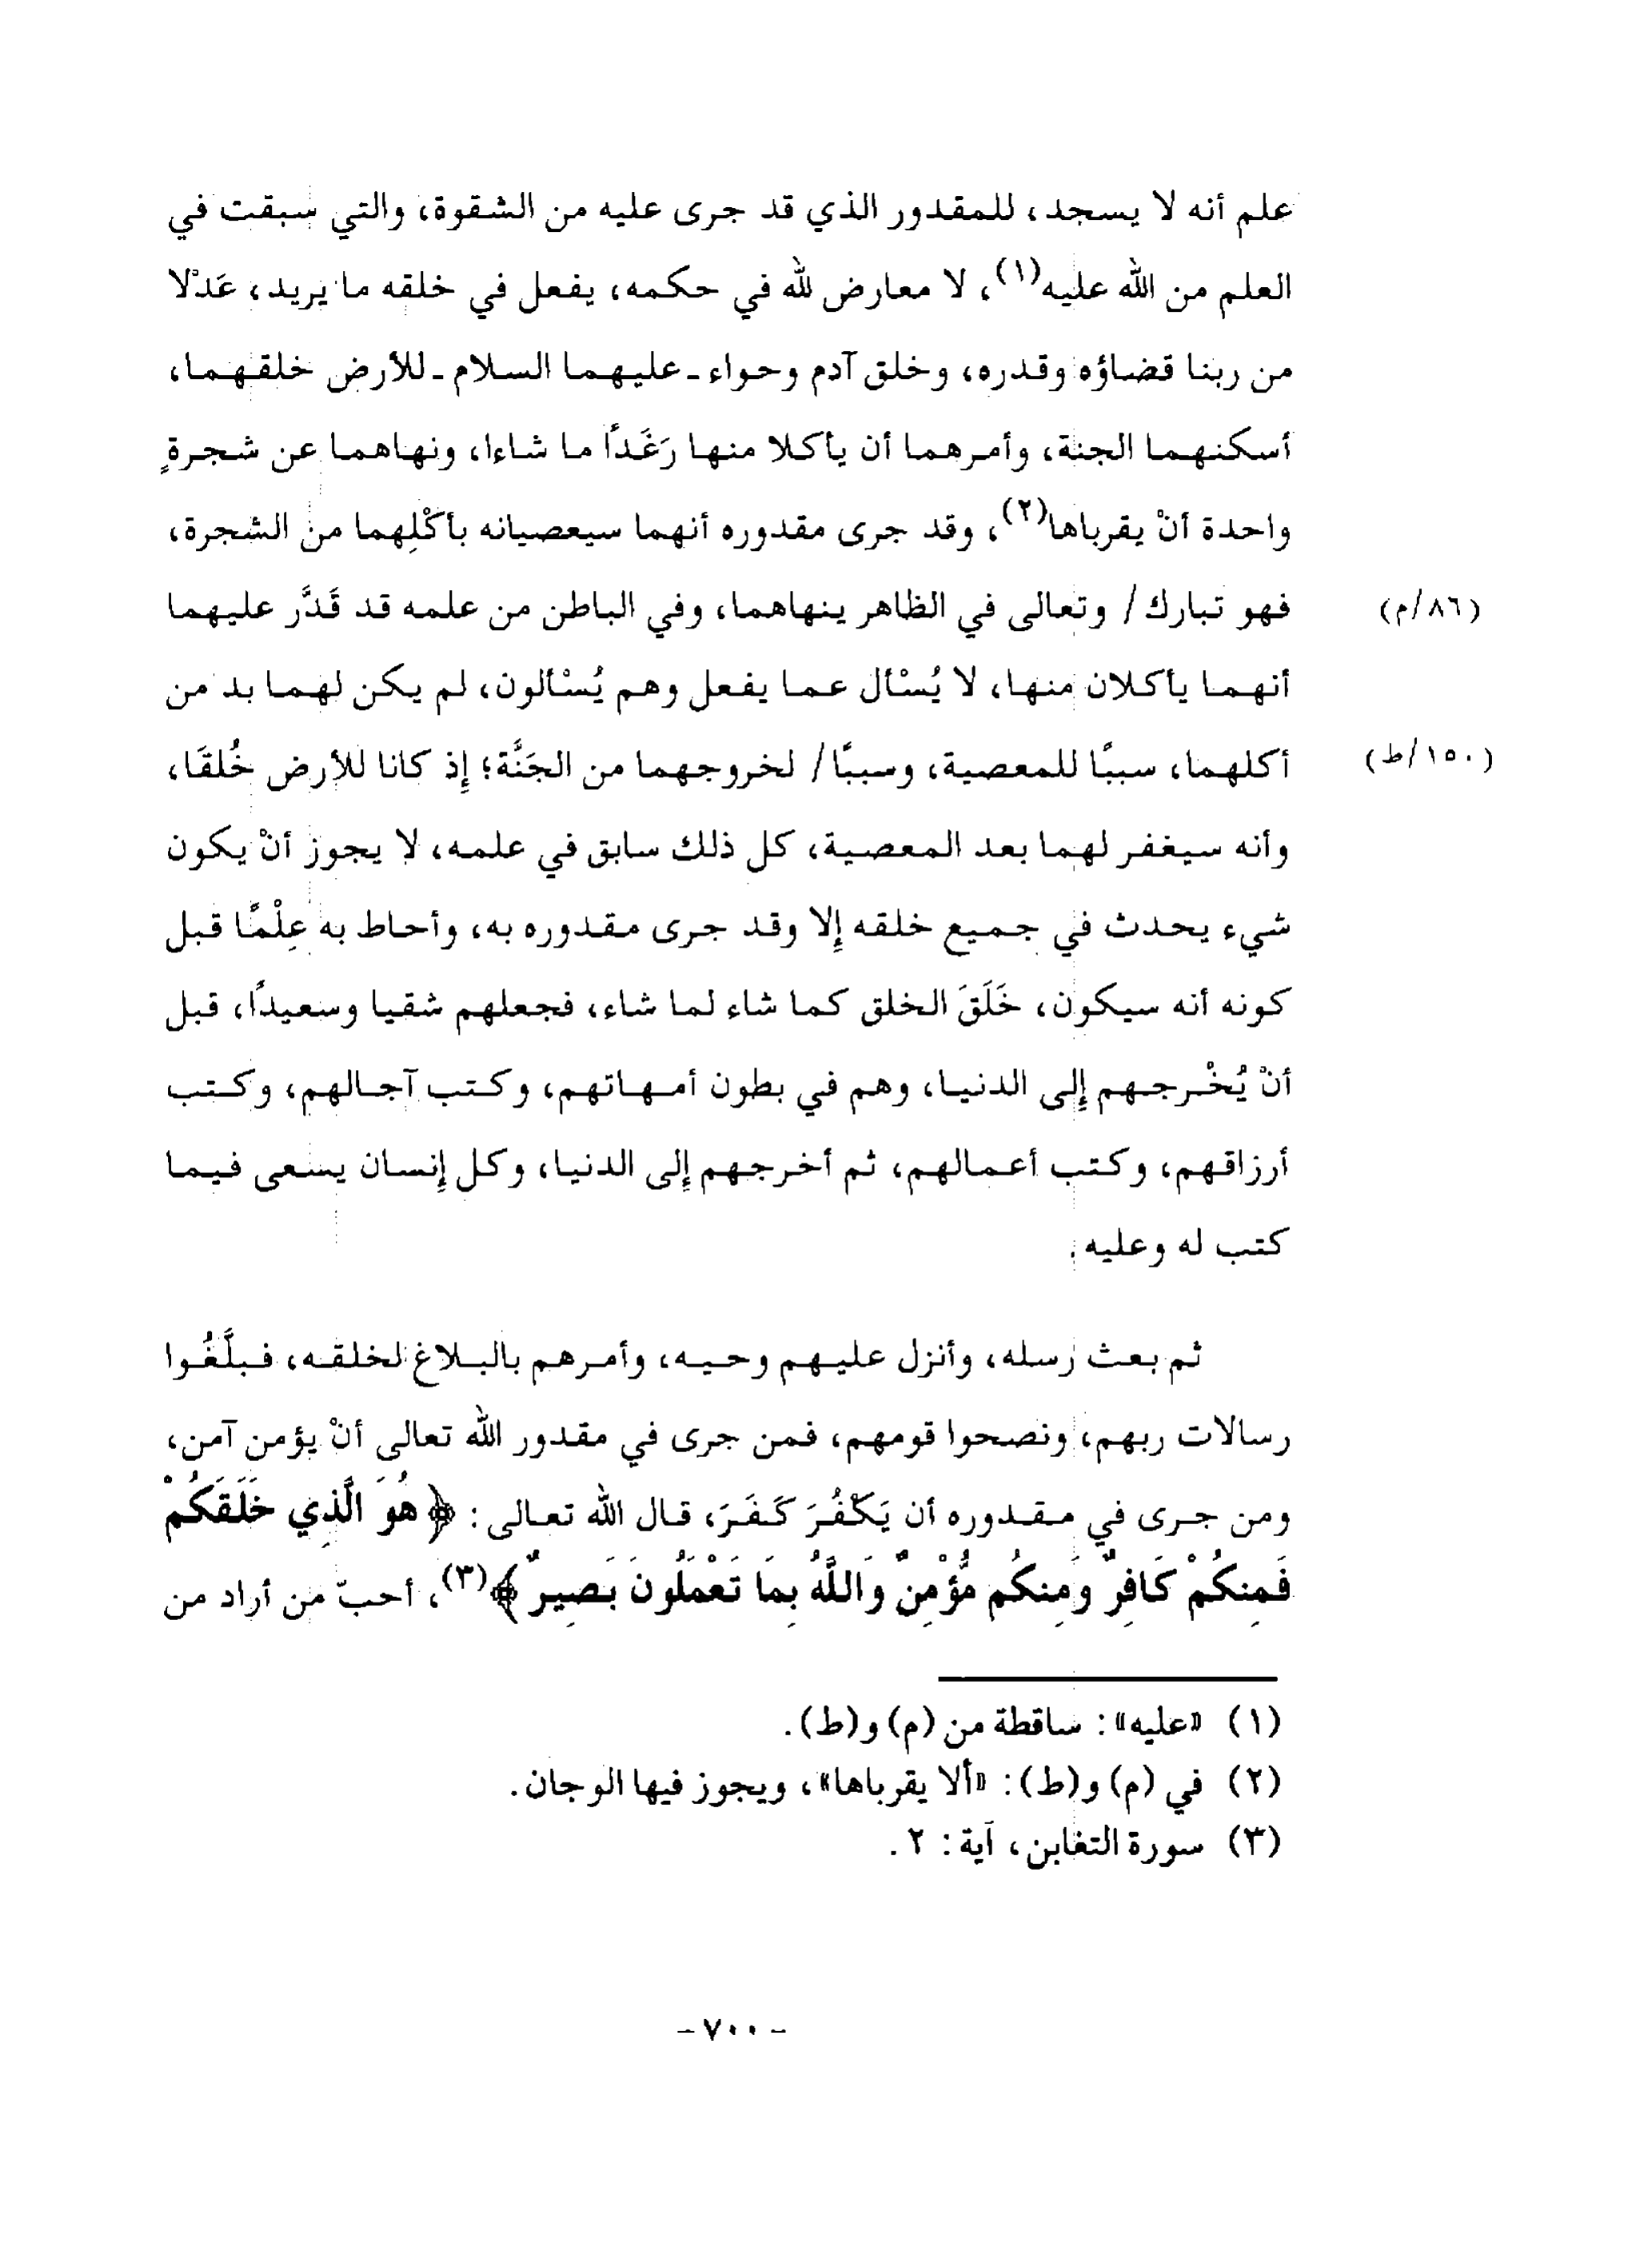 علم أنه لا يسجد، للمقدور الذي قد جرى عليه من الشقوة، والتي سبقت في
العلم من الله عليه(١)، لا معارض لله في حكمه، يفعل في خلقه ما يريد، عَدْلا
من ربنا قضاؤه وقدره، وخلق آدم وحواء ـ عليهما السلام ـ للأرض خلقهما،
أسكنهما الجنة، وأمرهما أن يأكلا منها رَغَدًا ما شاءا، ونهاهما عن شجرةٍ
واحدة أنْ يقرباها(٢)، وقد جرى مقدوره أنهما سيعصيانه بأكْلِهما من الشجرة،
فهو تبارك / وتعالى في الظاهر ينهاهما، وفي الباطن من علمه قد قَدَّر عليهما (٨٦/م)
أنهما يأكلان منها، لا يُسْأل عما يفعل وهم يُسْألون، لم يكن لهما بد من
أكلهما، سببًا للمعصية، وسببًا / لخروجهما من الجَنَّة؛ إذ كانا للأرض خُلقَا، (١٥٠/ط)
وأنه سيغفر لهما بعد المعصية، كل ذلك سابق في علمه، لا يجوز أنْ يكون
شيء يحدث في جميع خلقه إلا وقد جرى مقدوره به، وأحاط به عِلْمًا قبل
كونه أنه سيكون، خَلَقَ الخلق كما شاء لما شاء، فجعلهم شقيا وسعيدًا، قبل
أنْ يُخْرجهم إلى الدنيا، وهم في بطون أمهاتهم، وكتب آجالهم، وكتب
أرزاقهم، وكتب أعمالهم، ثم أخرجهم إلى الدنيا، وكل إنسان يسعى فيما
كتب له وعليه.
ثم بعث رسله، وأنزل عليهم وحيه، وأمرهم بالبلاغ لخلقه، فبلَّغُوا
رسالات ربهم، ونصحوا قومهم، فمن جرى في مقدور الله تعالى أنْ يؤمن آمن،
ومن جرى في مقدوره أن يَكْفُرَ كَفَرَ، قال الله تعالى: ﴿هُوَ الَّذِي خَلَقَكُمْ
فَمِنكُمْ كَافِرٌ وَمِنكُم مُّؤْمِنٌ وَاللَّهُ بِمَا تَعْمَلُونَ بَصِيرٌ﴾(٣)، أحبّ من أراد من
(١) «عليه»: ساقطة من (م) و(ط).
(٢) في (م) و(ط): «ألا يقرباها»، ويجوز فيها الوجان.
(٣) سورة التغابن، آية: ٢.
- ٧٠٠ -